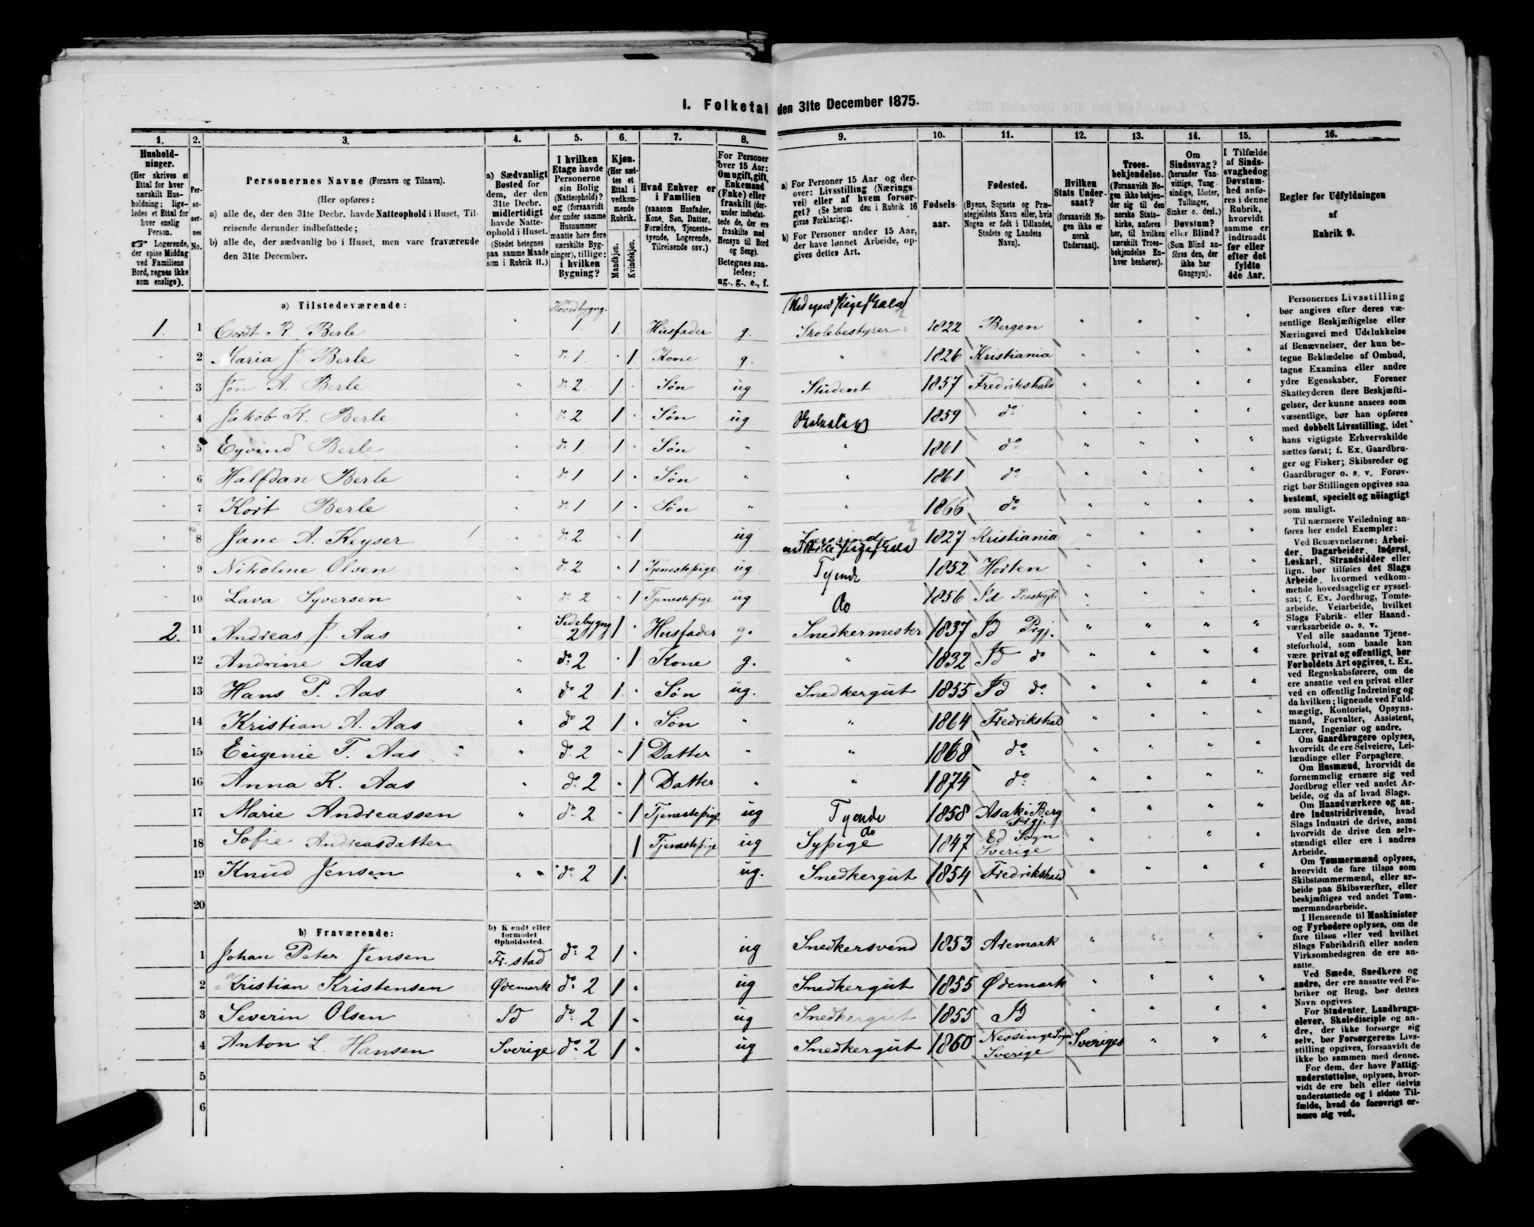 I. Folketal den 31te December 1875.
1. 2. 3. 4. 5. 6. 7. 8. 9. 10. 11. 12. 13. 14. 15. 16.
Hushold-
ninger.
(Her skrives et
Ettal for hver
særskilt Hus-
holdning; lige-
ledes et Ettal for
hver enslig
Person.
☞ Logerende,
der spise Middag
ved Familiens
Bord, regnes ikke
som enslige).
Per-
soner-
nes
No.
Personernes Navne (Fornavn og Tilnavn).
(Her opføres:
a) alle de, der den 31te Decbr. havde Natteophold i Huset, Til-
reisende derunder indbefattede;
b) alle de, der sædvanlig bo i Huset, men vare fraværende
den 31te December.
a) Sædvanligt
Bosted for
dem, der den
31te Decbr.
midlertidigt
havde Natte-
ophold i Huset.
(Stedet betegnes
paa samme Maade
som i Rubrik 11.)
I hvilken
Etage havde
Personerne
sin Bolig
(Natteophold)?
og (forsaavidt
der under samme
Husnummer
maatte høre flere
særskilte Byg-
ninger), tillige:
i hvilken
Bygning?
Kjøn.
(Her sæt-
tes et
Ettal i
vedkom-
mende
Rubrik.
Mandkjøn.
Kvindekjøn.
Hvad Enhver er
i Familien
(saasom Husfader,
Kone, Søn, Datter,
Forældre, Tjeneste-
tyende, Logerende,
Tilreisende osv.)
For Personer
over 15 Aar:
Om ugift, gift,
Enkemand
(Enke) eller
fraskilt (der-
under indbefat-
tede de, der ere
fraskilte med
Hensyn til Bord
og Seng).
Betegnes saa-
ledes:
ug., g., e., f.
a) For Personer 15 Aar og der-
over: Livsstilling (Nærings
vei) eller af hvem forsør-
get? (Se herom den i Rubrik 16
givne Forklaring).
b) For Personer under 15 Aar,
der have lønnet Arbeide, op-
gives dettes Art.
Fødsels-
aar.
Fødested.
(Byens, Sognets og Præ-
stegjeldets Navn eller, hvis
Nogen er født i Udlandet,
Stedets og Landets
Navn).
Hvilken
Stats Under-
saat?
(forsaavidt No-
gen ikke er
norsk
Undersaat).
Troes-
bekjendelse.
(Forsaavidt No-
gen ikke bekjen-
der sig til den
norske Stats-
kirke, anføres
her, til hvilken
særskilt Troes-
bekjendelse En-
hver henhører).
Om
Sindssvag?
(herunder Van-
vittige, Tung-
sindige, Idioter,
Tullinger,
Sinker o. desl.)
Døvstum?
eller Blind?
(Som Blind an-
føres den, der
ikke har
Gangsyn).
I Tilfælde
af Sinds-
svaghed og
Døvstum-
hed anfø-
res i denne
Rubrik,
hvorvidt
samme er
indtraadt
før eller
efter det
fyldte
4de Aar.
Regler for Udfyldningen
af
Rubrik 9.
a) Tilstedeværende: Hovedbygng. Med egen Pigeskole
1. 1 Cordt K Berle 1 1 Husfader g. Skolebestyrer 1822 Bergen
2 Maria J Berle do 1. 1 Kone g. 1826 Kristiania
3 Jon A. Berle do 2. 1 Søn ug Student 1857 Fredrikshald
4 Jakob K. Berle do 2 1 Søn ug 1859 do
5 Eyvind Berle do 1. 1 Søn 1861 do
6 Halfdan Berle do 1 1 Søn 1861 do
7 Kort Berle do 1 1 Søn 1866 do
8 Jane A. Keyser do 2 1 ug 1827 Kristiania
9 Nikoline Olsen do 2 1 Tjenestepige ug. Tyende 1852 Horten
10 Lava Syversen do 2 1 Tjenestepige ug Do 1856 Id
Sidebygng
2. 11 Andreas J. Aas 2 1 Husfader g. Snedkermester 1837 Id Prgj.
12 Andrine Aas do 2 1 Kone g. 1832 Id do
13 Hans P. Aas do 2 1. Søn ug. Snedkergut 1855 Id do.
14 Kristian A. Aas do 2 1 Søn 1864 Fredrikshal
15 Eugenie T. Aas do 2 1 Datter 1868 do
16 Anna K. Aas do 2 1 Datter 1874 do
17 Marie Andreassen do 2 1 Tjenestepige ug Tyende 1858 Asak i Berg
Prgj.
18 Sofie Andreasdatter 1 Tjenestepige ug Sypige do 1847 Ed Sogn
Sverige
19 Knud Jensen do 2 1. ug. Snedkergut 1854 Fredrikshald
20
b) Fraværende: b) Kendt eller
formodet
Opholdssted.
1 Johan Peter Jensen Fr. stad do 2 1 ug Snedkersvend 1853 Aremark
2 Kristian Kristensen Ødemark do 2 1 ug Snedkergut 1855 Ødemark
3 Severin Olsen Id do 2 1 ug Snedkergut 1855 Id
4 Anton L. Hansen Sverige do 2 1 ug Snedkergut 1860 Nessinge Sogn Sveriges
Sverige
5
6
Personernes Livsstilling
bør angives efter deres væ-
sentlige Beskjæftigelse eller
Næringsvei med Udelukkelse
af Benævnelser, der kun be-
tegne Beklædelse af Ombud,
tagne Examina eller andre
ydre Egenskaber. Forener
Skatteyderen flere Beskjæfti-
gelser, der kunne ansees som
væsentlige, bør han opføres
med dobbelt Livsstilling, idet
hans vigtigste Erhvervskilde
sættes først; f. Ex. Gaardbru-
ger og Fisker; Skibsreder og
Gaardbruger o. s. v. Forøv-
rigt bør Stillingen opgives saa
bestemt, specielt og nöiagtigt
som muligt.
Til nærmere Veiledning an-
føres her endel Exempler:
Ved Benævnelserne: Arbei-
der, Dagarbeider, Inderst,
Løskarl, Strandsidder eller
lign. bør tilføies det Slags
Arbeide, hvormed vedkom-
mende hovedsagelig er syssel-
sat; f. Ex. Jordbrug, Tomte-
arbeide, Veiarbeide, hvilket
Slags Fabrik- eller Haand-
værksarbeide o. s. v.
Ved alle saadanne Tjene-
steforhold, som baade kan
være privat og offentligt, bør
Forholdets Art opgives, t. Ex.
ved Regnskabsførere, om de
ere ansatte ved en privat eller
ved en offentlig Indretning og
da hvilken; lignende ved Fuld-
mægtig, Kontorist, Opsyns-
mand, Forvalter, Assistent,
Lærer, Ingeniør og andre.
Om Gaardbrugere oplyses,
hvorvidt de ere Selveiere, Lei-
lændinge eller Forpagtere.
Om Husmænd, hvorvidt de
fornemmelig ernære sig ved
Jordbrug eller ved andet Ar-
beide, og da af hvad Slags.
Om Haandværkere og an-
dre Industridrivende, hvad
Slags Industri de drive, samt
hvorvidt de drive den selv-
stændigt eller ere i andres
Arbeide.
Om Tømmermænd oplyses,
hvorvidt de fare tilsøs som
Skibstømmermænd, eller ar-
beide paa Skibsværfter, eller
beskjæftiges ved andet Tøm-
mermandsarbeide.
I Henseende til Maskinister
og Fyrbødere oplyses, om de
fare tilsøs eller ved hvilket
Slags Fabrikdrift eller anden
Virksomhedsgren de ere an-
satte.
Ved Smede, Snedkere og
andre, der ere ansatte ved Fa-
briker og Brug, bør dettes
Navn opgives
For Studenter, Landbrugs-
elever, Skoledisciple og an-
dre, der ikke forsørge sig
selv, bør Forsørgerens Livs-
stilling opgives, forsaavidt de
ikke bo sammen med denne.
For dem, der have Fattig-
understøttelse, oplyses, hvor-
vidt de ere helt eller delvis
understøttede og i sidste Til-
fælde, hvad de forøvrigt er-
nære sig ved.